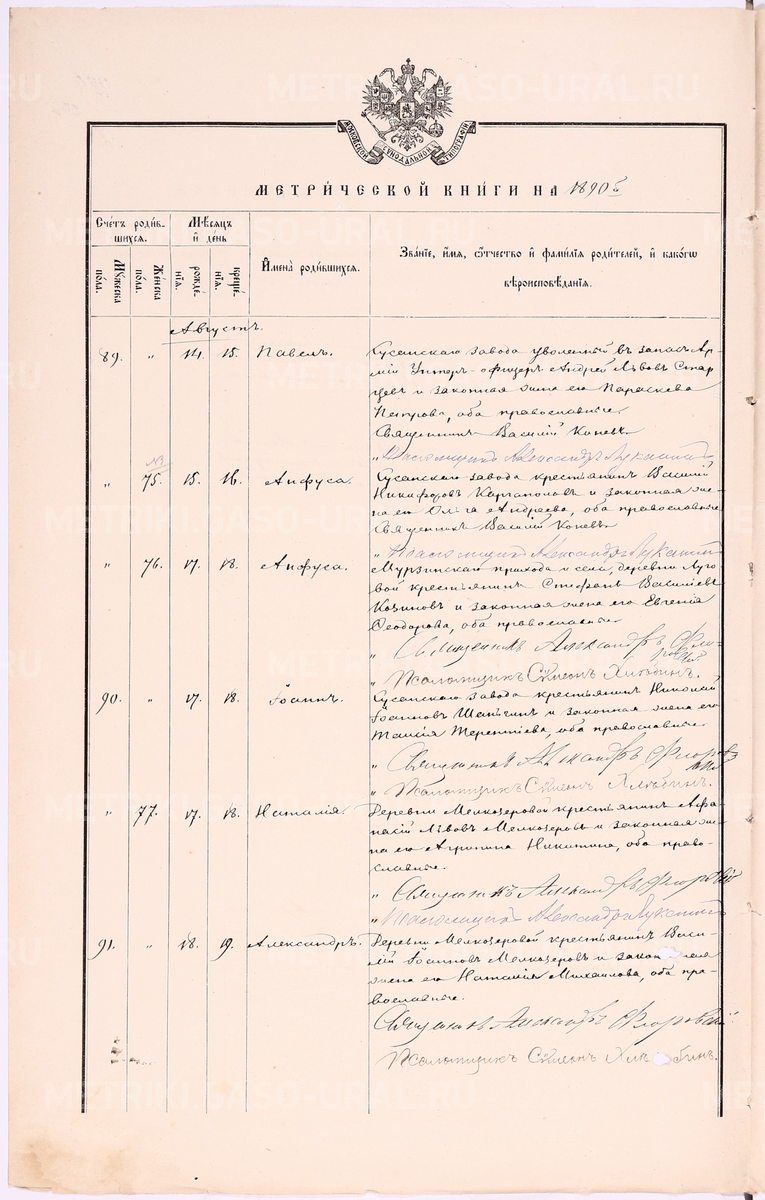 МОСКОВСКОЙ СУНОДАЛЬНОЙ ТИПОГРАФІИ
МЕТРИ́ЧЕСКОЙ КНИ́ГИ НА 1890 г
Сче́тъ роди́в-
шихся.
Му́жеска
по́ла.
Же́нска
по́ла.
Мѣ́сяцъ
и де́нь
рожде́-
нїя.
креще́-
нїя.
И҆мена̀ роди́вшихся.
Зва́нїе, и҆́мя, ѻ҆́тчество и҆ фами́лїя роди́телей, и҆ како́гѡ
вѣроисповѣ́данїя.
Августъ.
89. " 14. 15. Павелъ.
Сусанскаго завода уволенный въ запасъ Ар-
міи Унтеръ-офицеръ Андрей Львовъ Стар
цевъ и законная жена его Параскева
Петрова, оба православные.
Священникъ Василій Коневъ.
" Псаломщикъ Александръ
№
" 75. 15. 16. Анфуса.
Сусанскаго завода крестьянинъ Василій
Никифоровъ Каргаполовъ и законная же-
на его Ольга Андреева, оба православные
Священникъ Василій Коневъ
" Псаломщикъ Александръ
" 76. 17. 18. Анфуса.
Мурзинскаго прихода и села, деревни Луго
вой крестьянинъ Стефанъ Василіевъ
Козиновъ и законная жена его Евгенія
Ѳеодорова, оба православные
" Священникъ Александръ Флоровскій
" Псаломщикъ Сѵмеонъ Хлѣбинъ.
90. " 17. 18. Іоаннъ.
Сусанскаго завода крестьянинъ Николай
Іоанновъ Шаньгинъ и законная жена его
Таисія Терентіева, оба православные
" Священникъ Александръ Флоровскій
" Псаломщикъ Сѵмеонъ Хлѣбинъ.
" 77. 17. 18. Наталія.
Деревни Мелкозеровой крестьянинъ Афа-
насій Львовъ Мелкозеровъ и законная же-
на его Агрипина Никитина, оба право-
славные.
" Священникъ Александръ Флоровскій
" Псаломщикъ Александръ
91. " 18. 19. Александръ.
Деревни Мелкозеровой крестьянинъ Васи-
лій Іоанновъ Мелкозеровъ и законная
жена его Наталія Михаилова, оба пра-
вославные.
Священникъ Александръ Флоровскій
Псаломщикъ Сѵмеонъ Хлѣбинъ.
METRIKI.GASO-URAL.RU